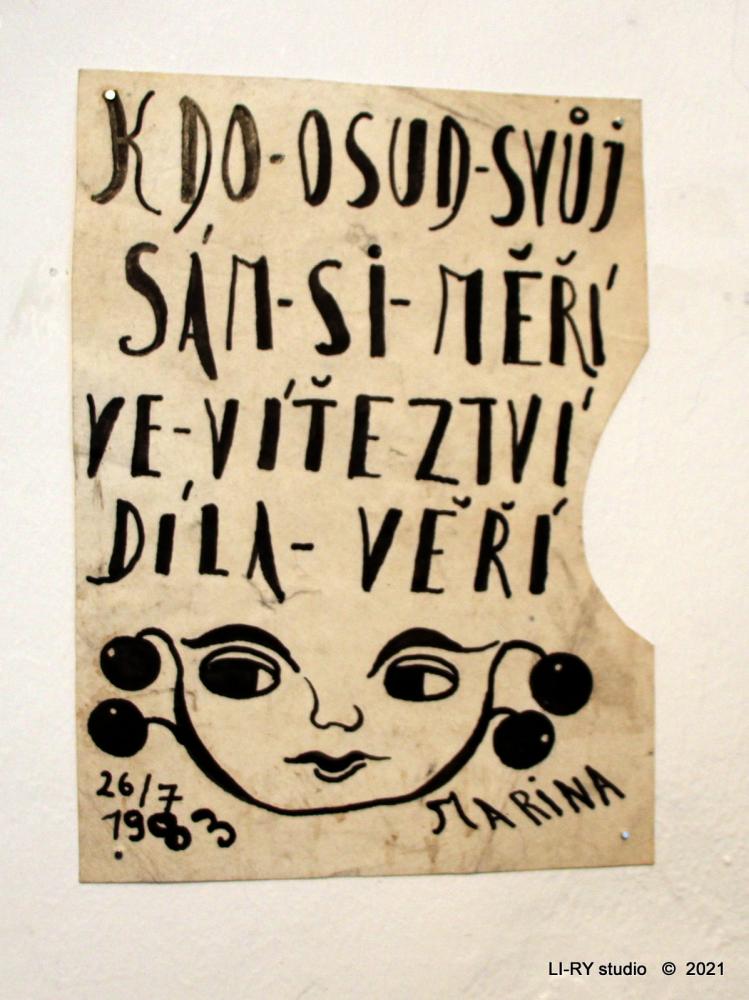 KDO-OSUD-SVŮJ
SÁM-SI-MĚŘÍ
VE-VÍŤEZTVÍ
DÍLA-VĚŘÍ
26/7
MARINA
LI-RY studio © 2021